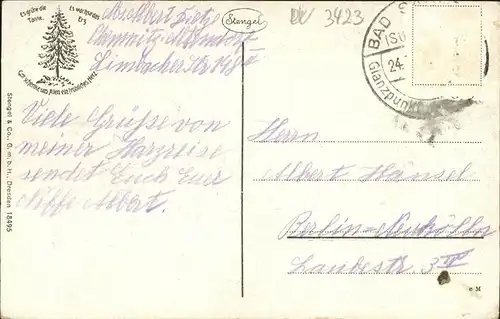 Es grüne die Tanne,
Es wachse das Erz
Gott schenke uns Allen ein fröhliches Herz
Abs. Albert
Chemnitz-Altendorf
Limbacher Str.
Stengel
3423
BAD
24.
Glanzpunkt
Viele Grüsse von
meiner Harzreise
sendet Euch Euer
Neffe Albert.
Herrn
Albert Hänsel
Berlin-Neukölln
Laubestr. 3 IV
Stengel & Co., G. m. b. H., Dresden 18495